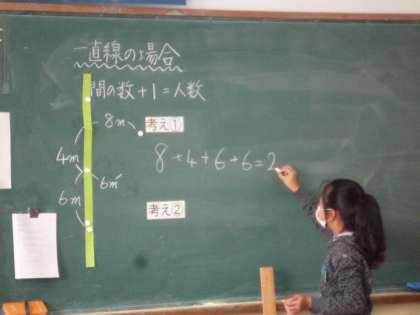 一直線の場合
間の数+1=人数
8m
考え①
4m
8+4+6+6=2
6m
6m
考え②